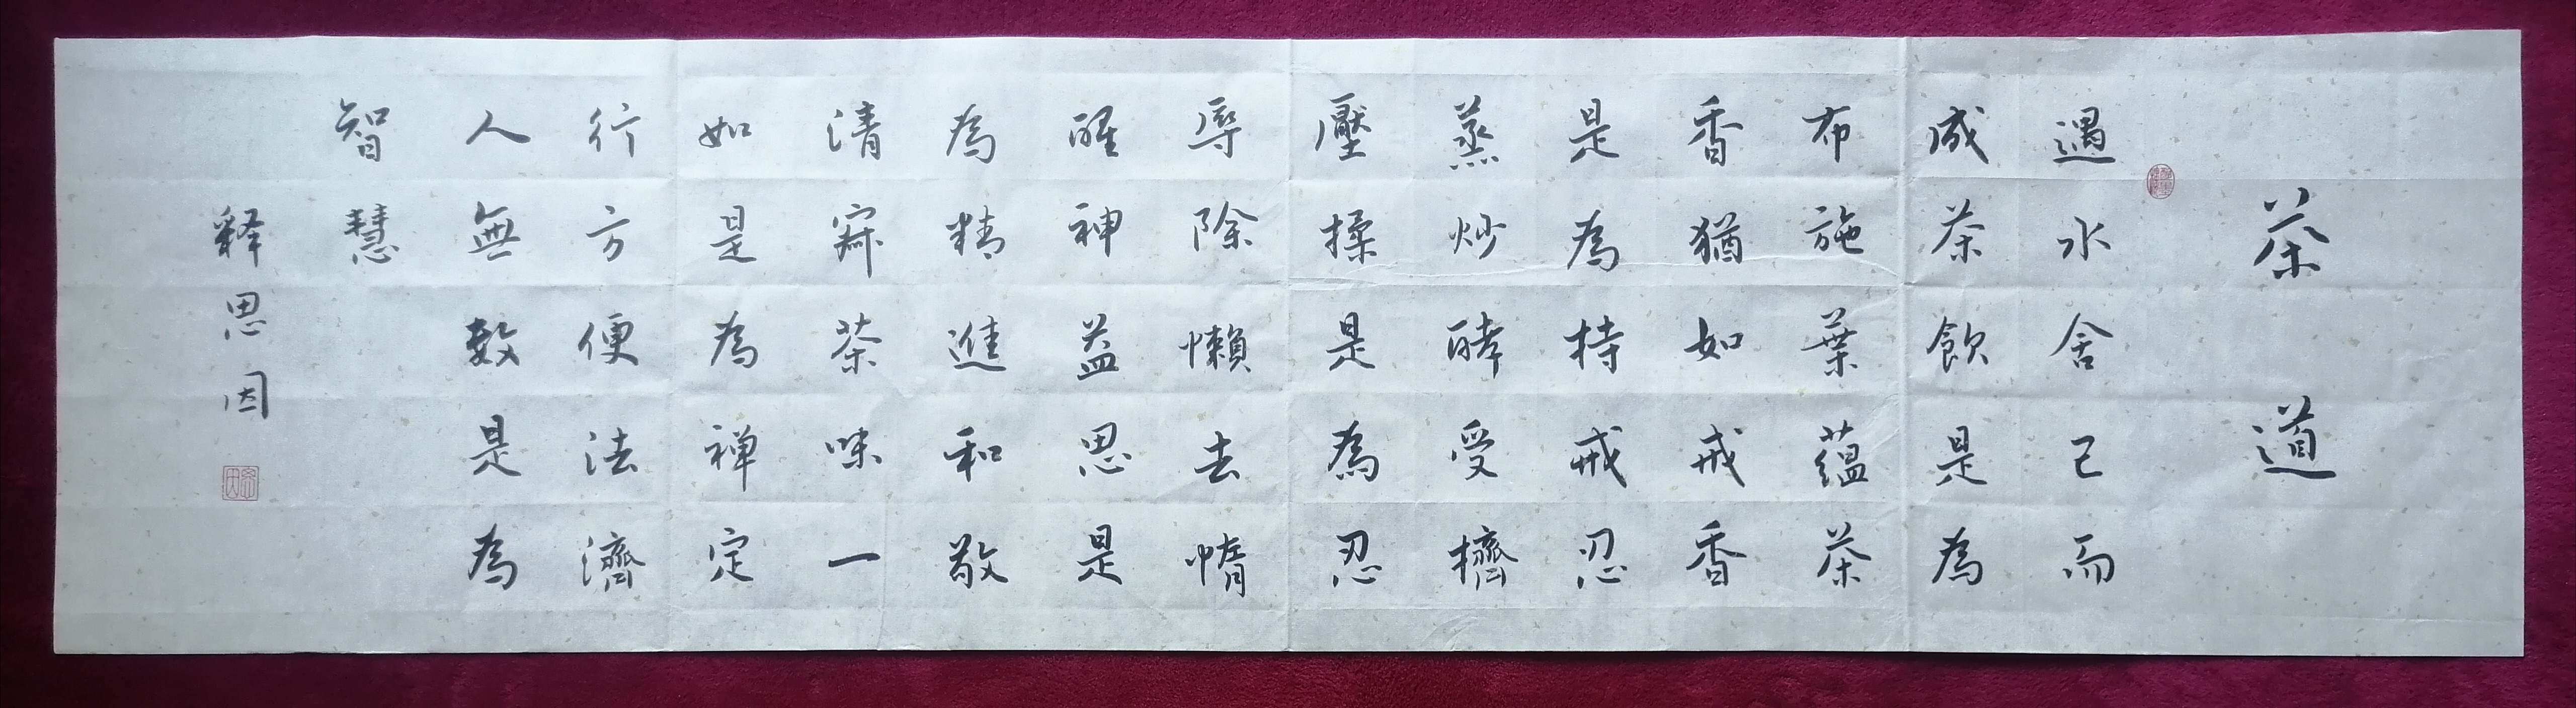 茶道
遇水舍己而
成茶飲是為
布施葉蘊茶
香猶如戒香
是為持戒忍
蒸炒酵受擠
壓揉是為忍
辱除懶去惰
醒神益思是
為精進和敬
清寂茶味一
如是為禅定
行方便法濟
人無數是為
智慧
释思因